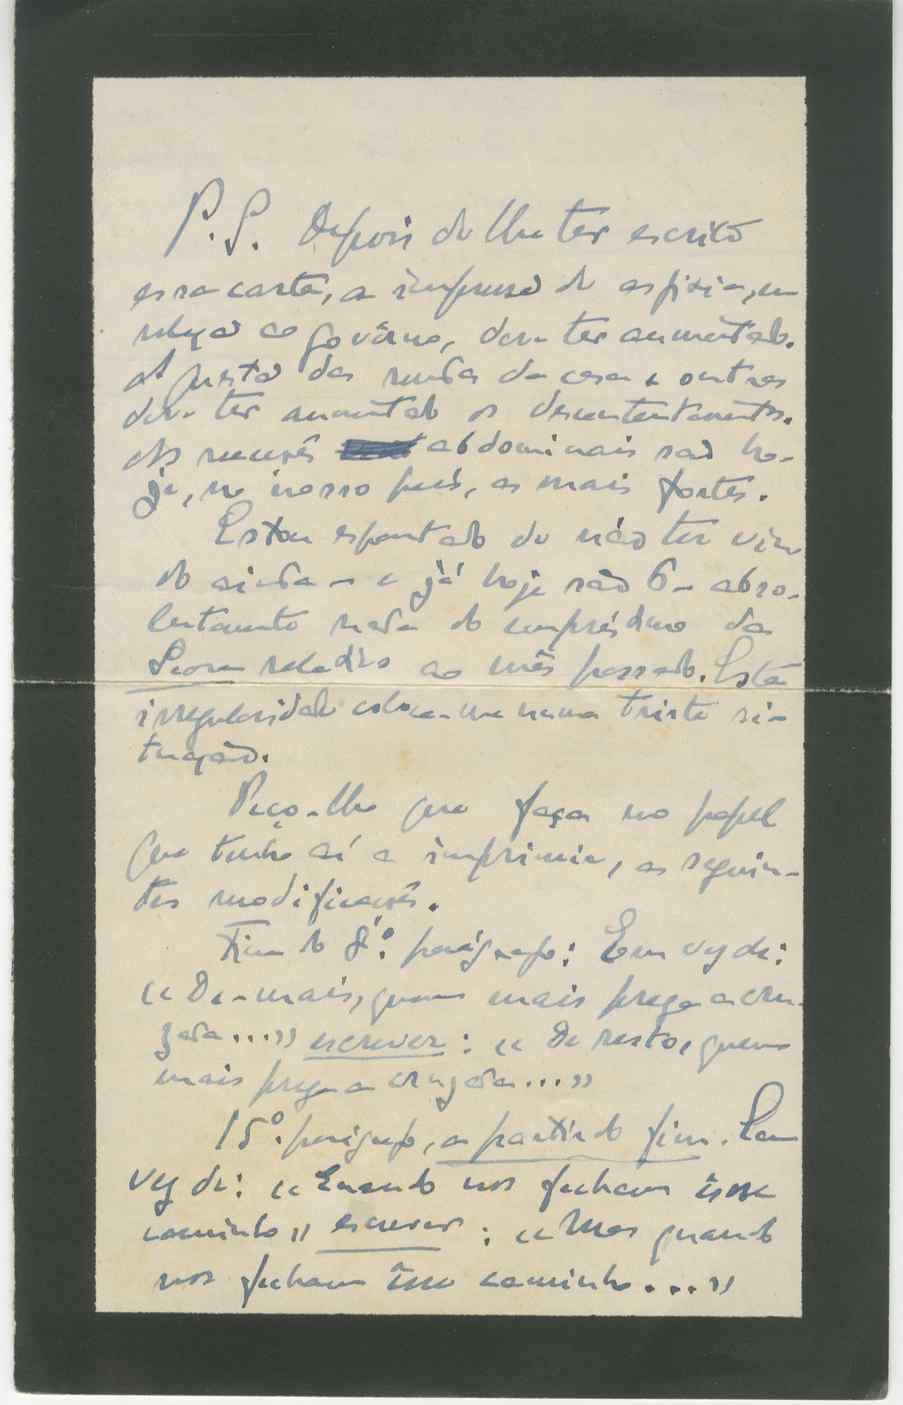 P.S. Depois de lhe ter escrito
essa carta, a impressão de asfixia, em
relação ao Govêrno, deve ter aumentado.
A questão das rendas de casa e outras
deve ter aumentado os descontentamentos.
As razões abdominais são ho-
je, no nosso país, as mais fortes.
Estou espantado de não ter vin-
do ainda – e já hoje são 6 – abso-
lutamente nada do empréstimo da
Seara relativo ao mês passado. Esta
irregularidade coloca-me numa triste si-
tuação.
Peço-lhe que faça no papel
que tenho aí a imprimir, as seguin-
tes modificações.
Fim do 8.º parágrafo: Em vez de:
«De-mais, quem mais prega a cru-
zada...» escrever: «De resto, quem
mais prega a cruzada...»
15.º parágrafo, a partir do fim. Em
vez de: «Quando nos fecham êsse
caminho» escrever: «Mas quando
nos fecham êsse caminho...»